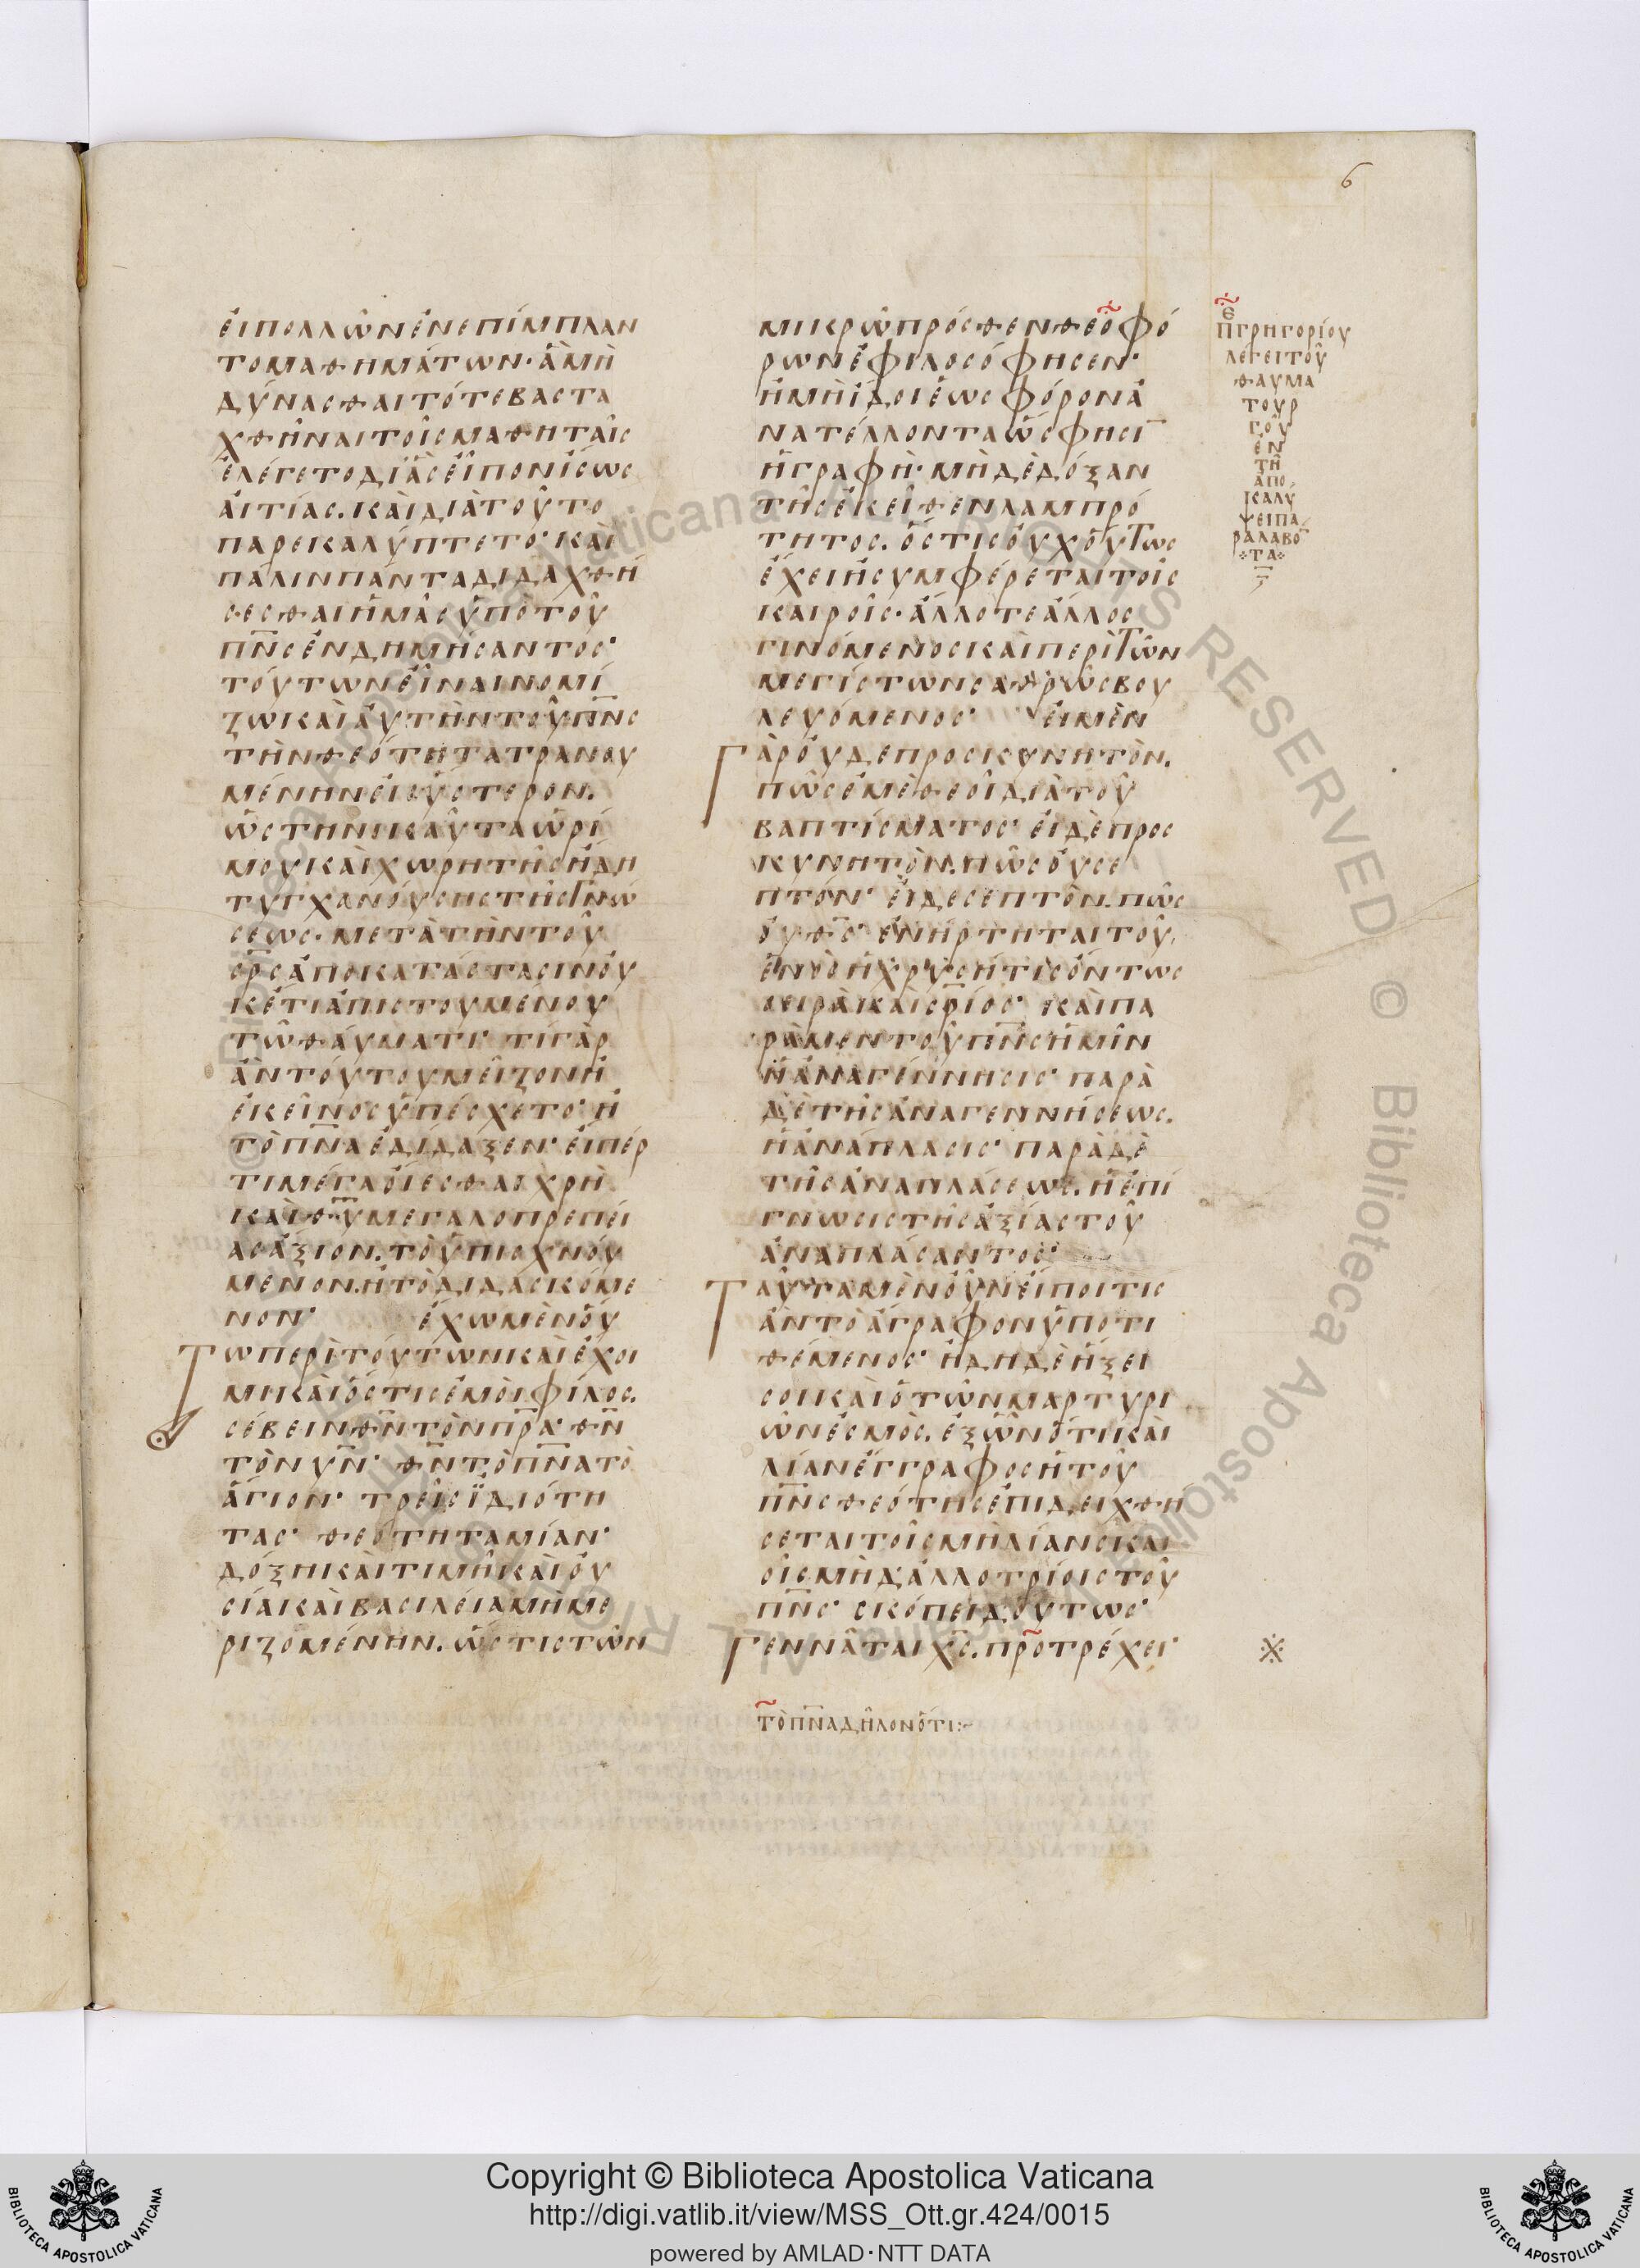 6
ἐιπολλῶνἐνεπίμπλαν
τομαθημάτων· ἃμὴ
δύνασθαιτότεβαστα
χθῆναιτοῖςμαθηταῖς
ἐλέγετοδἰἃςεἶπονἴσως
ἀιτίας. καὶδιὰτοῦτο
παρεκαλύπτετο· καὶ
πάλινπάνταδιδαχθή
σεσθαιἡμᾶςὑπὸτοῦ
πν̅ςἐνδημήσαντος·
τούτωνεἶναινομί
ζωκαὶἀυτὴντοῦπν̅ς
τὴνθεότητατρανου
μένηνἐισὕστερον.
ὡςτηνικαῦταὡρί
μουκαὶχωρητῆςἤδη
τυγχανούσηςτῆςγνώ
σεως· μετὰτὴντοῦ
σρ̅ςἀποκατάστασινὀυ
κέτιἀπιστουμένου
τῶθάυματι· τίγὰρ
ἂντούτουμεῖζονἢ
ἐκεῖνοςὑπέσχετο· ἢ
τὸπν̅αἐδίδαξεν· ἐιπέρ
τιμέγαὀίεσθαιχρὴ
καὶθυ̅μεγαλοπρεπεί
αςἄξιον. τὸὑπισχνού
μενον. ἢτὸδιδασκόμε
νον· ἔχωμὲνὁύ
Τωπερὶτούτωνκαὶἔχοι
μικαὶὅστιςἐμὸιφίλος.
σέβεινθν̅τὸνπρ̅α· θν̅
τὸνυν̅· θν̅τὸπν̅ατὸ
ἅγιον· τρεῖςἰδιότη
τας· θεότηταμίαν·
δόξηκαὶτιμῆκαὶὀυ
σίακαὶβασιλείαμὴμε
ριζομένην. ὥςτιςτῶν
μικρῶπρόσθενθεοφό
ρωνἐφιλοσόφησεν·
ἢμὴἴδοιἑωσφόρονἀ
νατέλλονταὥςφησι̅
ἡγραφὴ· μὴδὲδόξαν
τῆςἐκεῖθενλαμπρό
τητος. ὅστιςὀυχὅυτως
ἔχειἢσυμφέρεταιτοῖς
καιροῖς· ἄλλοτεἄλλος
γινόμενοςκαὶπερὶτῶν
μεγίστωνσαθρῶςβου
λευόμενος· ἐιμὲν
Γὰρὀυδεπροσκυνητὸν.
πῶςἐμὲθεοῖδιὰτοῦ
βαπτίσματος· ἐιδὲπροσ
κυνητὸν. πῶςὀυσε
πτόν· ἐιδεσεπτὸν. πῶς
ὀυθς̅· ἓνἤρτηταιτοῦ
ἑνὸςἡχρυσῆτιςὄντως
σειρὰκαὶσρ̅ιος· καὶπα
ρὰμεντοῦπν̅ςἡμῖν
ἡἀναγέννησις· παρὰ
δὲτῆςἀναγεννήσεως.
ἡἀνάπλασις· παρὰδὲ
τῆςἀναπλάσεως. ἡἐπί
γνωσιςτῆςἀξίαςτοῦ
ἀναπλάσαντος·
Ταῦταμὲνὀῦνἐίποιτις
ἂντὸἄγραφονὑποτι
θέμενος· ἤδηδὲἥξει
σοικαὶὁτῶνμαρτυρι
ῶνἐσμὸς. ἐξῶνὅτικαὶ
λίανἔγγραφοςἡτοῦ
πν̅ςθεότηςἐπιδειχθή
σεταιτοῖςμὴλίανσκαι
οῖςμὴδἀλλοτρίοιςτοῦ
πν̅ς· σκόπειδὅυτως·
Γεννᾶταιχς̅. προτρέχει·
τὸπν̅αδῆλονὅτι:~
Πγρηγορίου
λέγειτοῦ
θαυμα
τουρ
γοῦ
ἐν
τῆ
ἀπο
καλύ
ψειπα
ραλαβό
τα
Copyright © Biblioteca Apostolica Vaticana
http://digi.vatlib.it/view/MSS_Ott.gr.424/0015
powered by AMLAD·NTT DATA
BIBLIOTECA APOSTOLICA VATICANA
BIBLIOTECA APOSTOLICA VATICANA